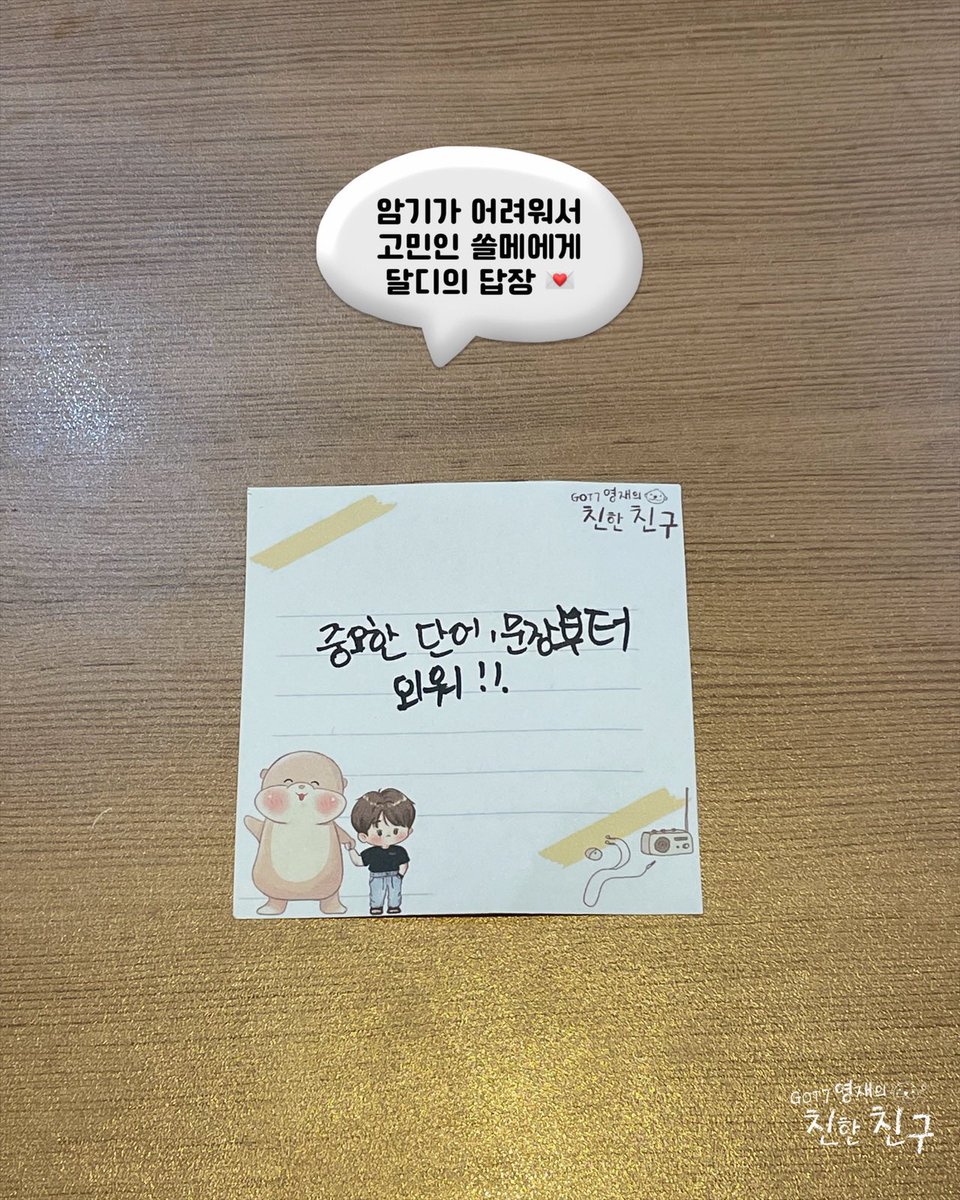 암기가 어려워서
고민인 쏠메에게
달디의 답장 💌
GOT7 영재의
친한 친구
중요한 단어, 문장부터
외워!!.
GOT7 영재의
친한 친구